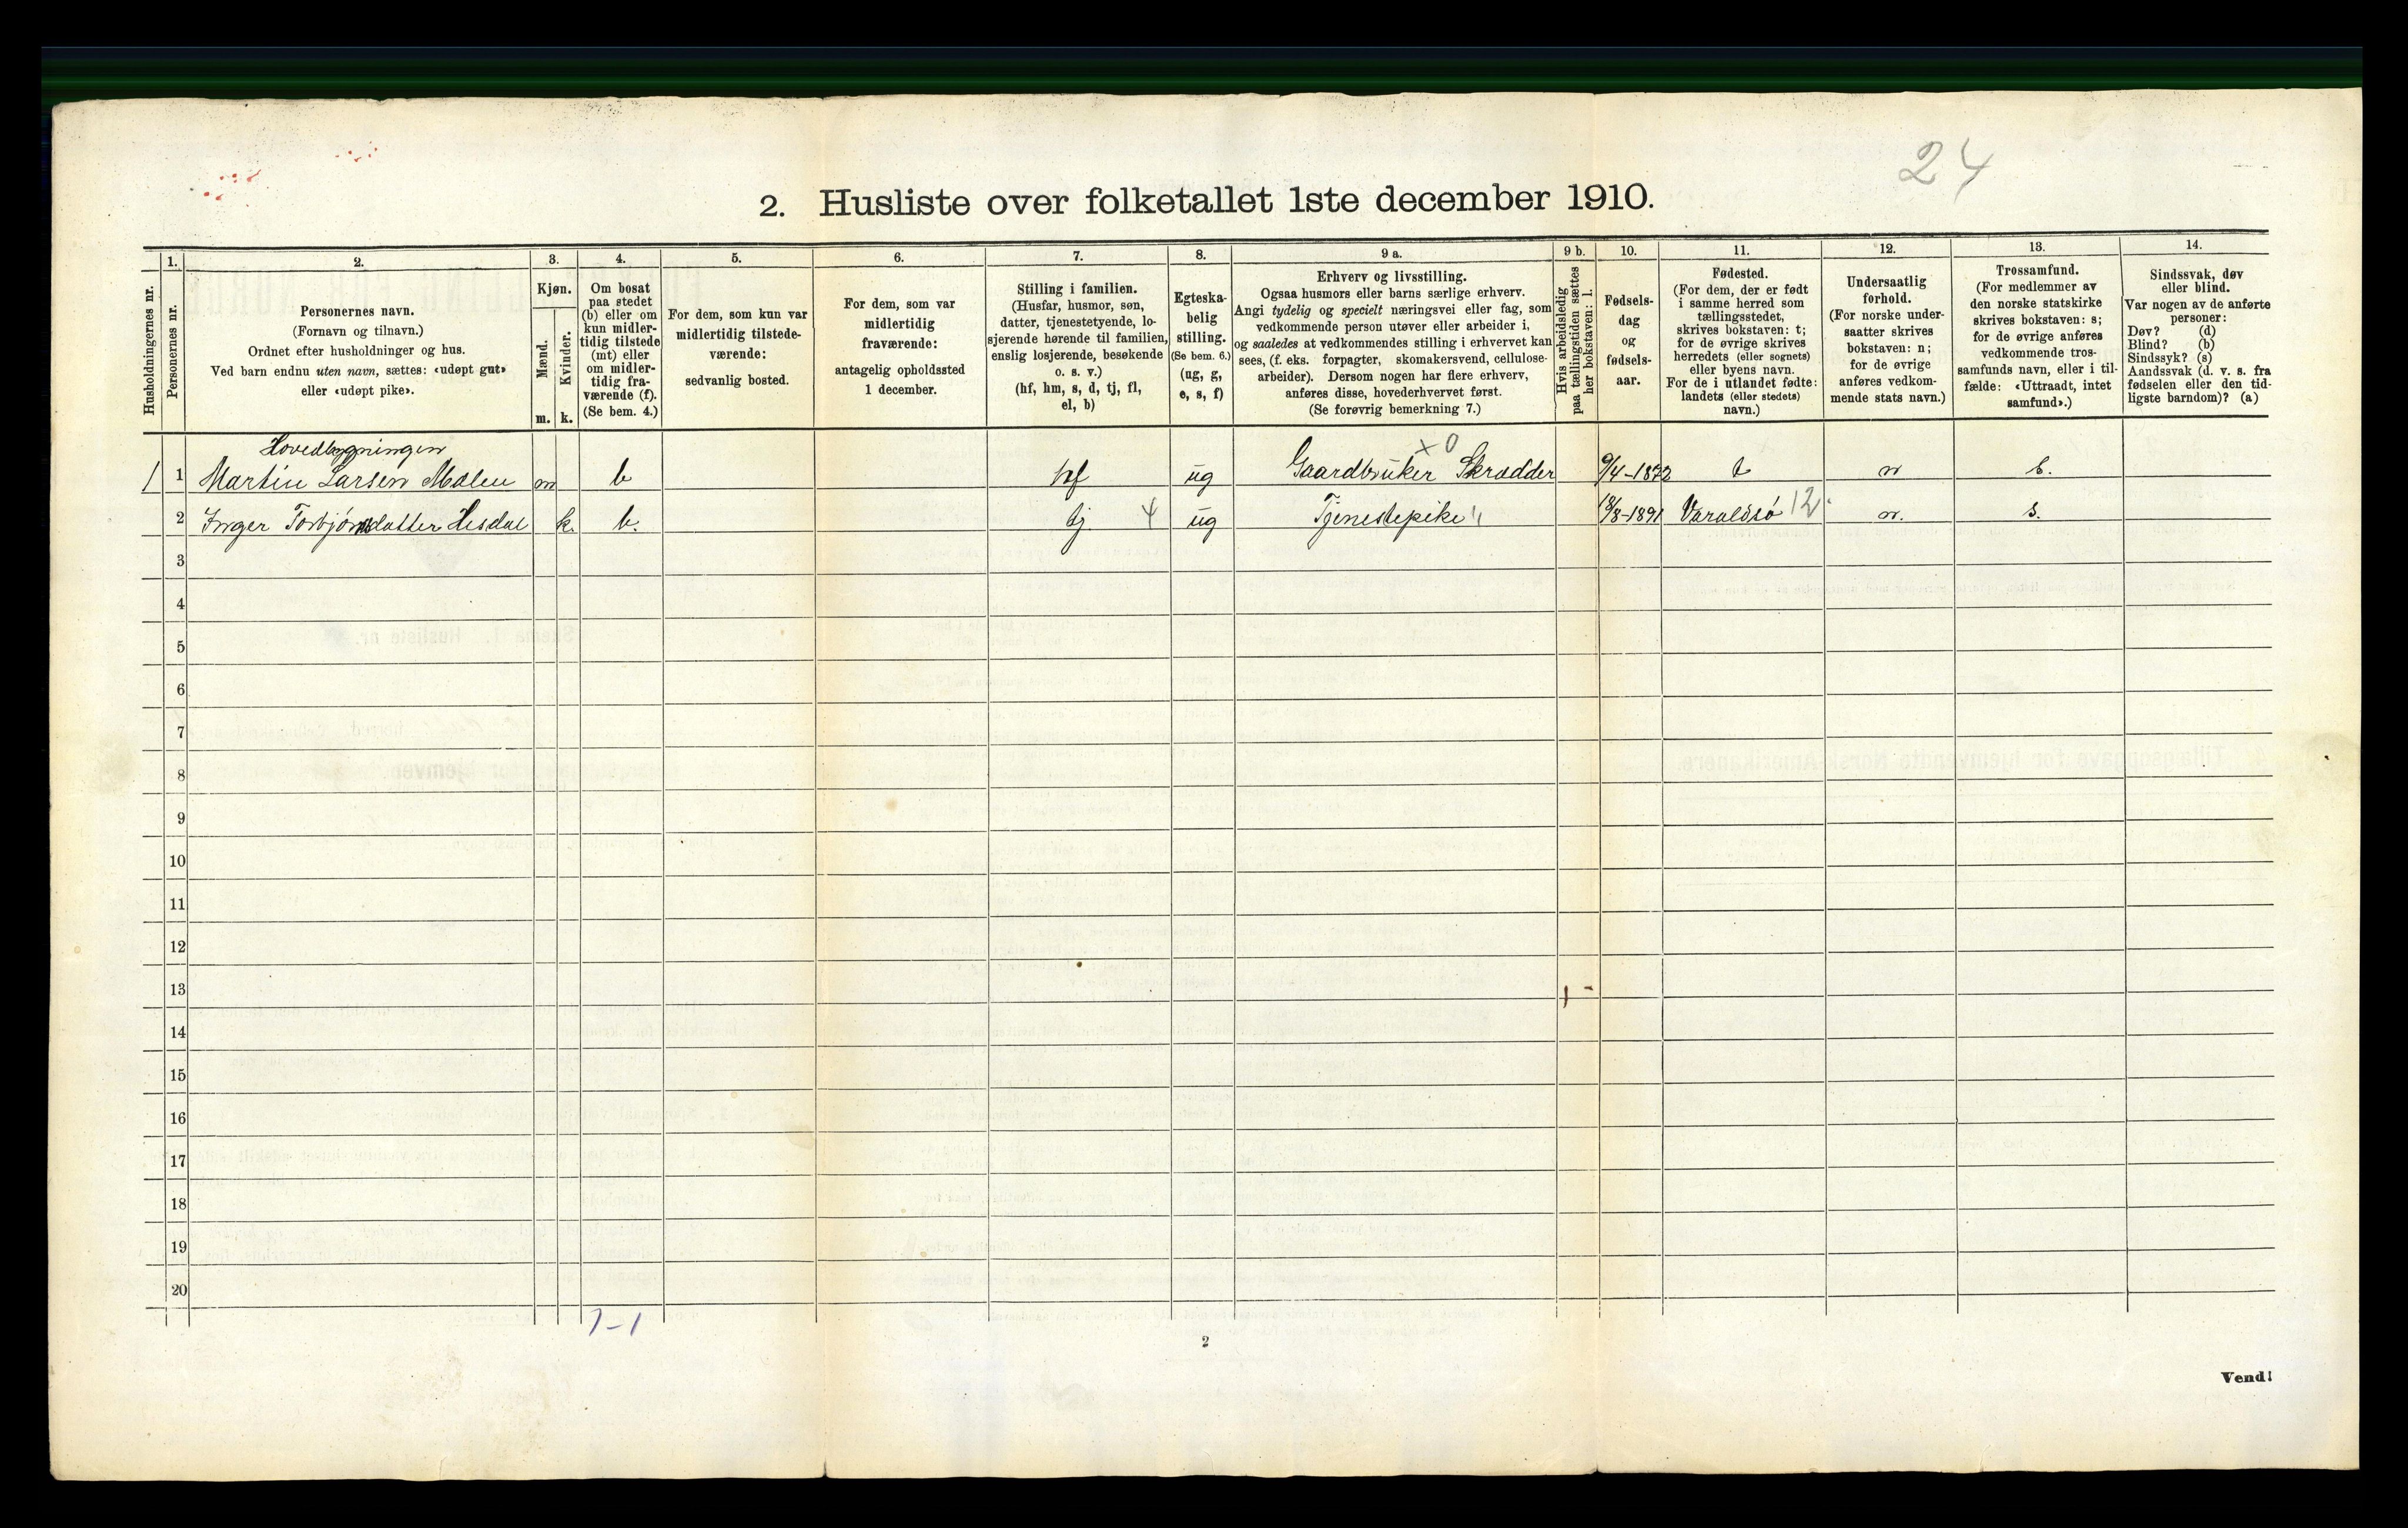 24
2. Husliste over folketallet 1ste december 1910.
Husholdningernes nr.
1.
Personernes nr.
2.
Personernes navn.
(Fornavn og tilnavn.)
Ordnet efter husholdninger og hus.
Ved barn endnu uten navn, sættes: «udøpt gut»
eller «udøpt pike».
3.
Kjøn.
Mænd.
Kvinder.
m. k.
4.
Om bosat
paa stedet
(b) eller om
kun midler-
tidig tilstede
(mt) eller
om midler-
tidig fra-
værende (f).
(Se bem. 4.)
5.
For dem, som kun var
midlertidig tilstede-
værende:
sedvanlig bosted.
6.
For dem, som var
midlertidig
fraværende:
antagelig opholdssted
1 december.
7.
Stilling i familien.
(Husfar, husmor, søn,
datter, tjenestetyende, lo-
sjerende hørende til familien,
enslig losjerende, besøkende
o. s. v.)
(hf, hm, s, d, tj, fl,
el, b)
8.
Egteska-
belig
stilling.
(Se bem. 6.)
(ug, g,
e, s, f)
9 a.
Erhverv og livsstilling.
Ogsaa husmors eller barns særlige erhverv.
Angi tydelig og specielt næringsvei eller fag, som
vedkommende person utøver eller arbeider i,
og saaledes at vedkommendes stilling i erhvervet kan
sees, (f. eks. forpagter, skomakersvend, cellulose-
arbeider). Dersom nogen har flere erhverv,
anføres disse, hovederhvervet først.
(Se forøvrig bemerkning 7.)
9 b.
Hvis arbeidsledig
paa tællingstiden sættes
her bokstaven: l.
10.
Fødsels-
dag
og
fødsels-
aar.
11.
Fødested.
(For dem, der er født
i samme herred som
tællingsstedet,
skrives bokstaven: t;
for de øvrige skrives
herredets (eller sognets)
eller byens navn.
For de i utlandet fødte:
landets (eller stedets)
navn.)
12.
Undersaatlig
forhold.
(For norske under-
saatter skrives
bokstaven: n;
for de øvrige
anføres vedkom-
mende stats navn.)
13.
Trossamfund.
(For medlemmer av
den norske statskirke
skrives bokstaven: s;
for de øvrige anføres
vedkommende tros-
samfunds navn, eller i til-
fælde: «Uttraadt, intet
samfund».)
14.
Sindssvak, døv
eller blind.
Var nogen av de anførte
personer:
Døv? (d)
Blind? (b)
Sindssyk? (s)
Aandssvak (d. v. s. fra
fødselen eller den tid-
ligste barndom)? (a)
Hovedbygningen
1 1 Martin Larsen Mælen m b hf ug Gaardbruker x 0 Skrædder 9/4-1872 t n s.
2 Inger Torbjørnsdatter Hisdal k. b. tj 4 ug Tjenestepike /8-1891 Varaldsø 12 n. s.
3
4
5
6
7
8
9
10
11
12
13
14
15
16
17
18
19
20
1-1
2
Vend!